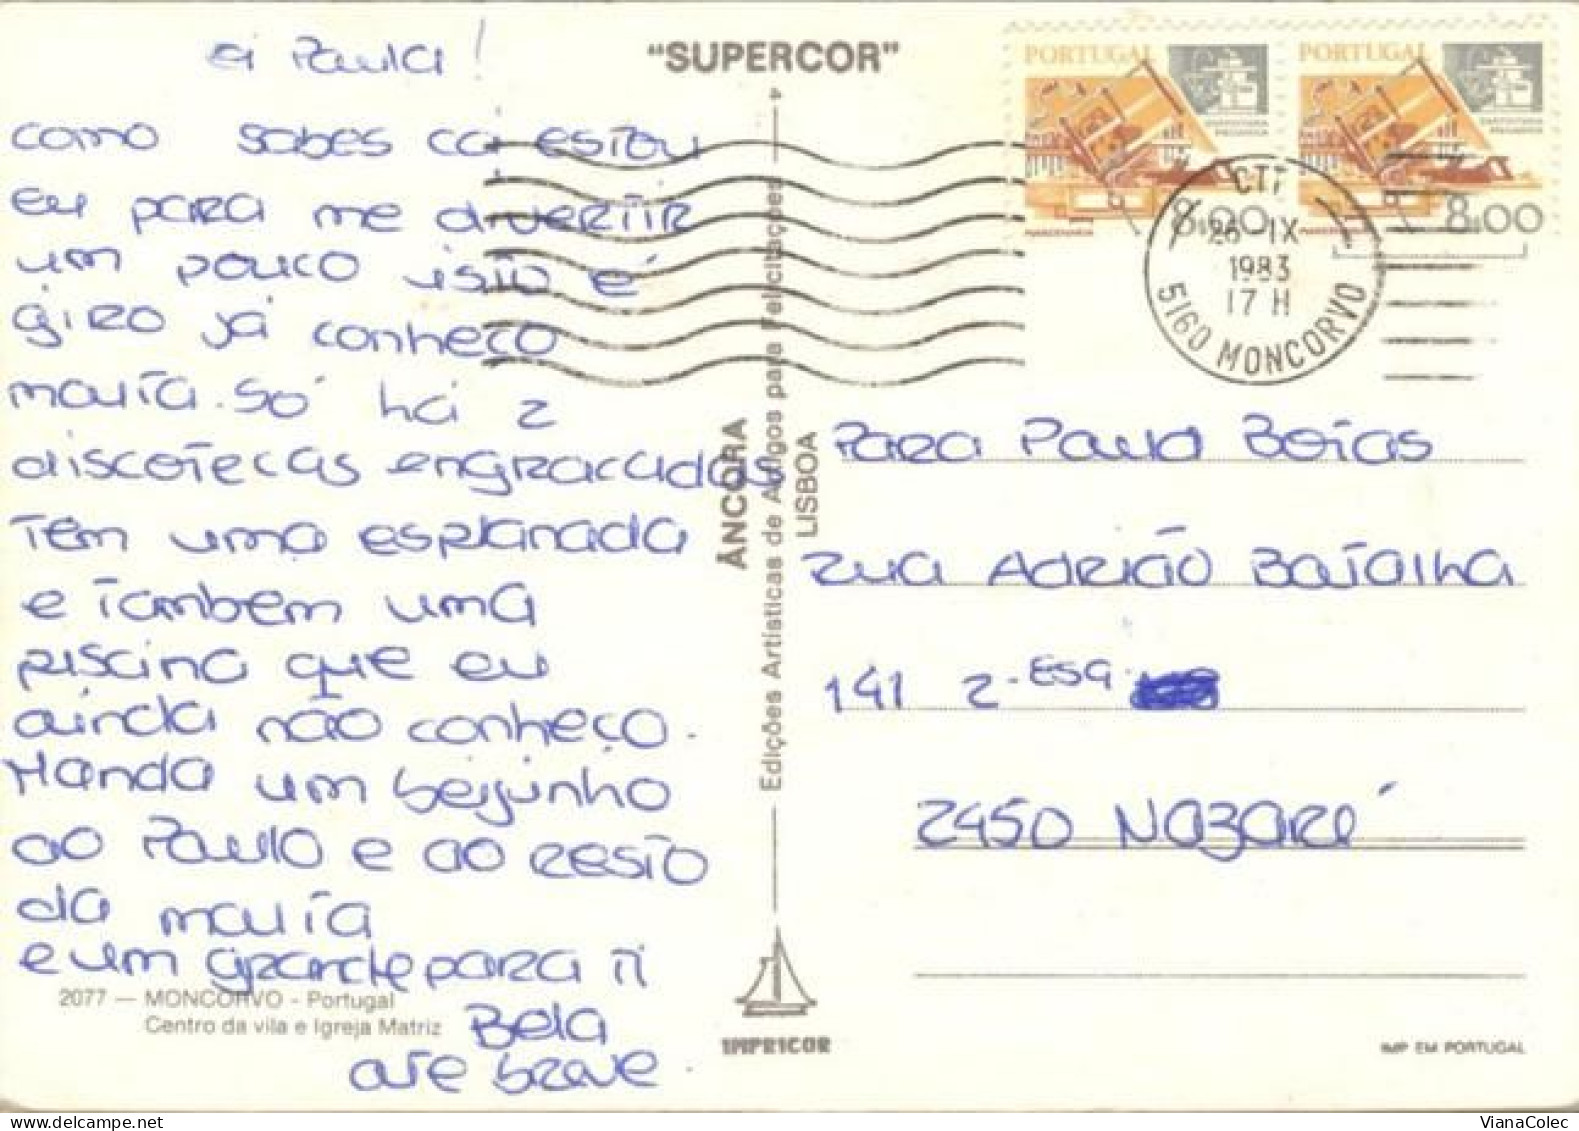 Oi Paula!
como sabes cá estou
eu para me divertir
um pouco isto é
giro já conheço
malta. Só há 2
discotecas engraçadas
Tem uma esplanada
e também uma
piscina que eu
ainda não conheço.
Manda um beijinho
ao Paulo e ao resto
da malta
e um grande para ti
Bela
até breve.
2077 — MONCORVO - Portugal
Centro da vila e Igreja Matriz
"SUPERCOR"
ÂNCORA
Edições Artísticas de Artigos para Felicitações
LISBOA
IMPRICOR
PORTUGAL
MARCENARIA
8.00
PORTUGAL
8.00
CTT
26 IX
1983
17 H
5160 MONCORVO
Para Paula Boias
Rua Adrião Batalha
141 2-ESQ
2450 Nazaré
IMP EM PORTUGAL
VianaColec